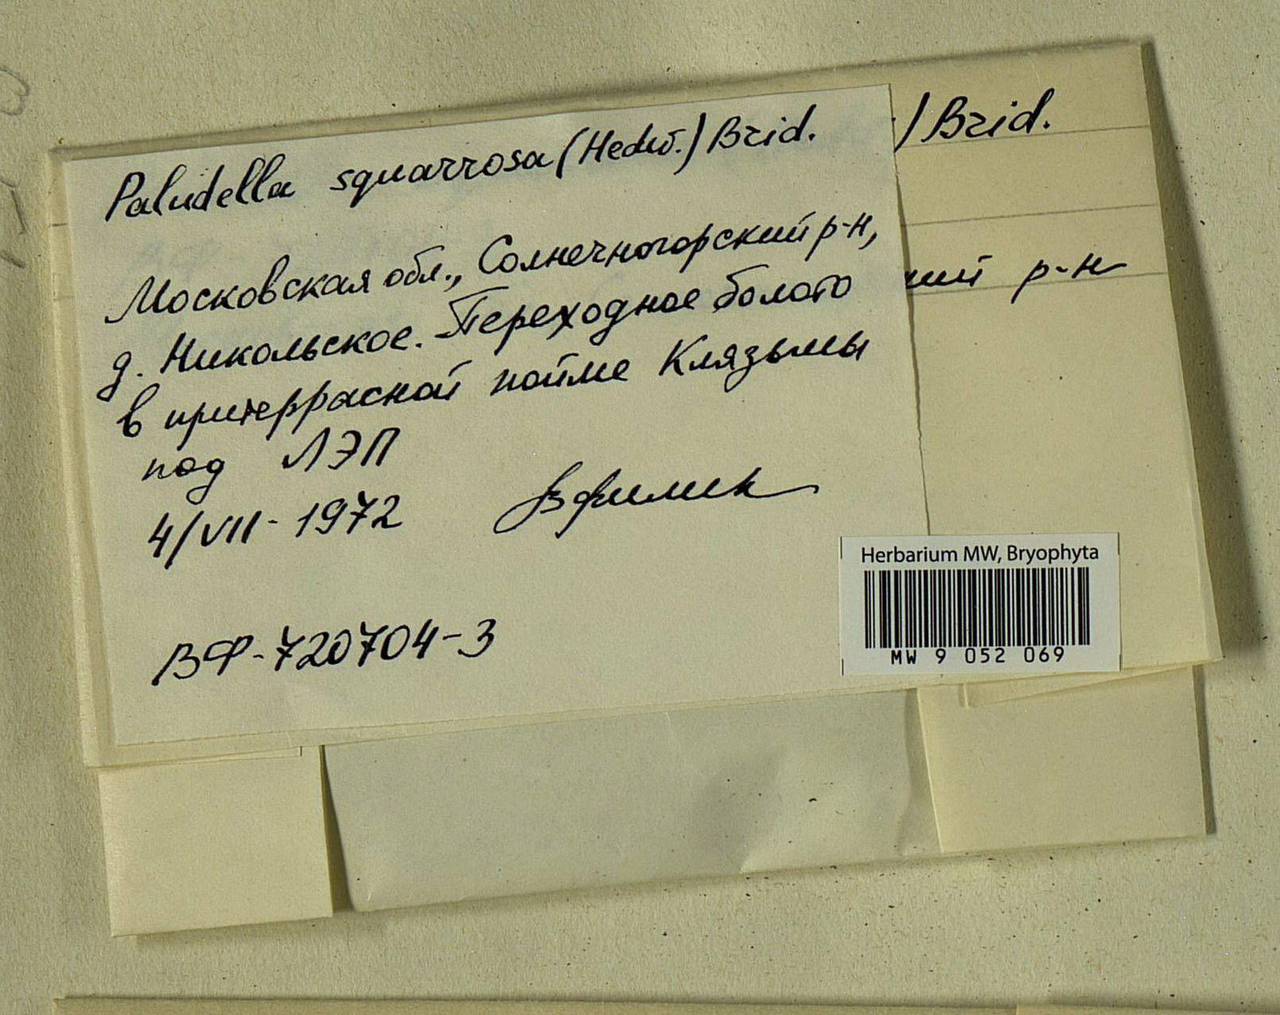 Paludella squarrosa (Hedw.) Brid.
Московская обл., Солнечногорский р-н,
д. Никольское. Переходное болото
в притеррасной пойме Клязьмы
под ЛЭП
4/VII-1972
ВФ-720704-3
) Brid.
ский р-н
Herbarium MW, Bryophyta
MW 9 052 069